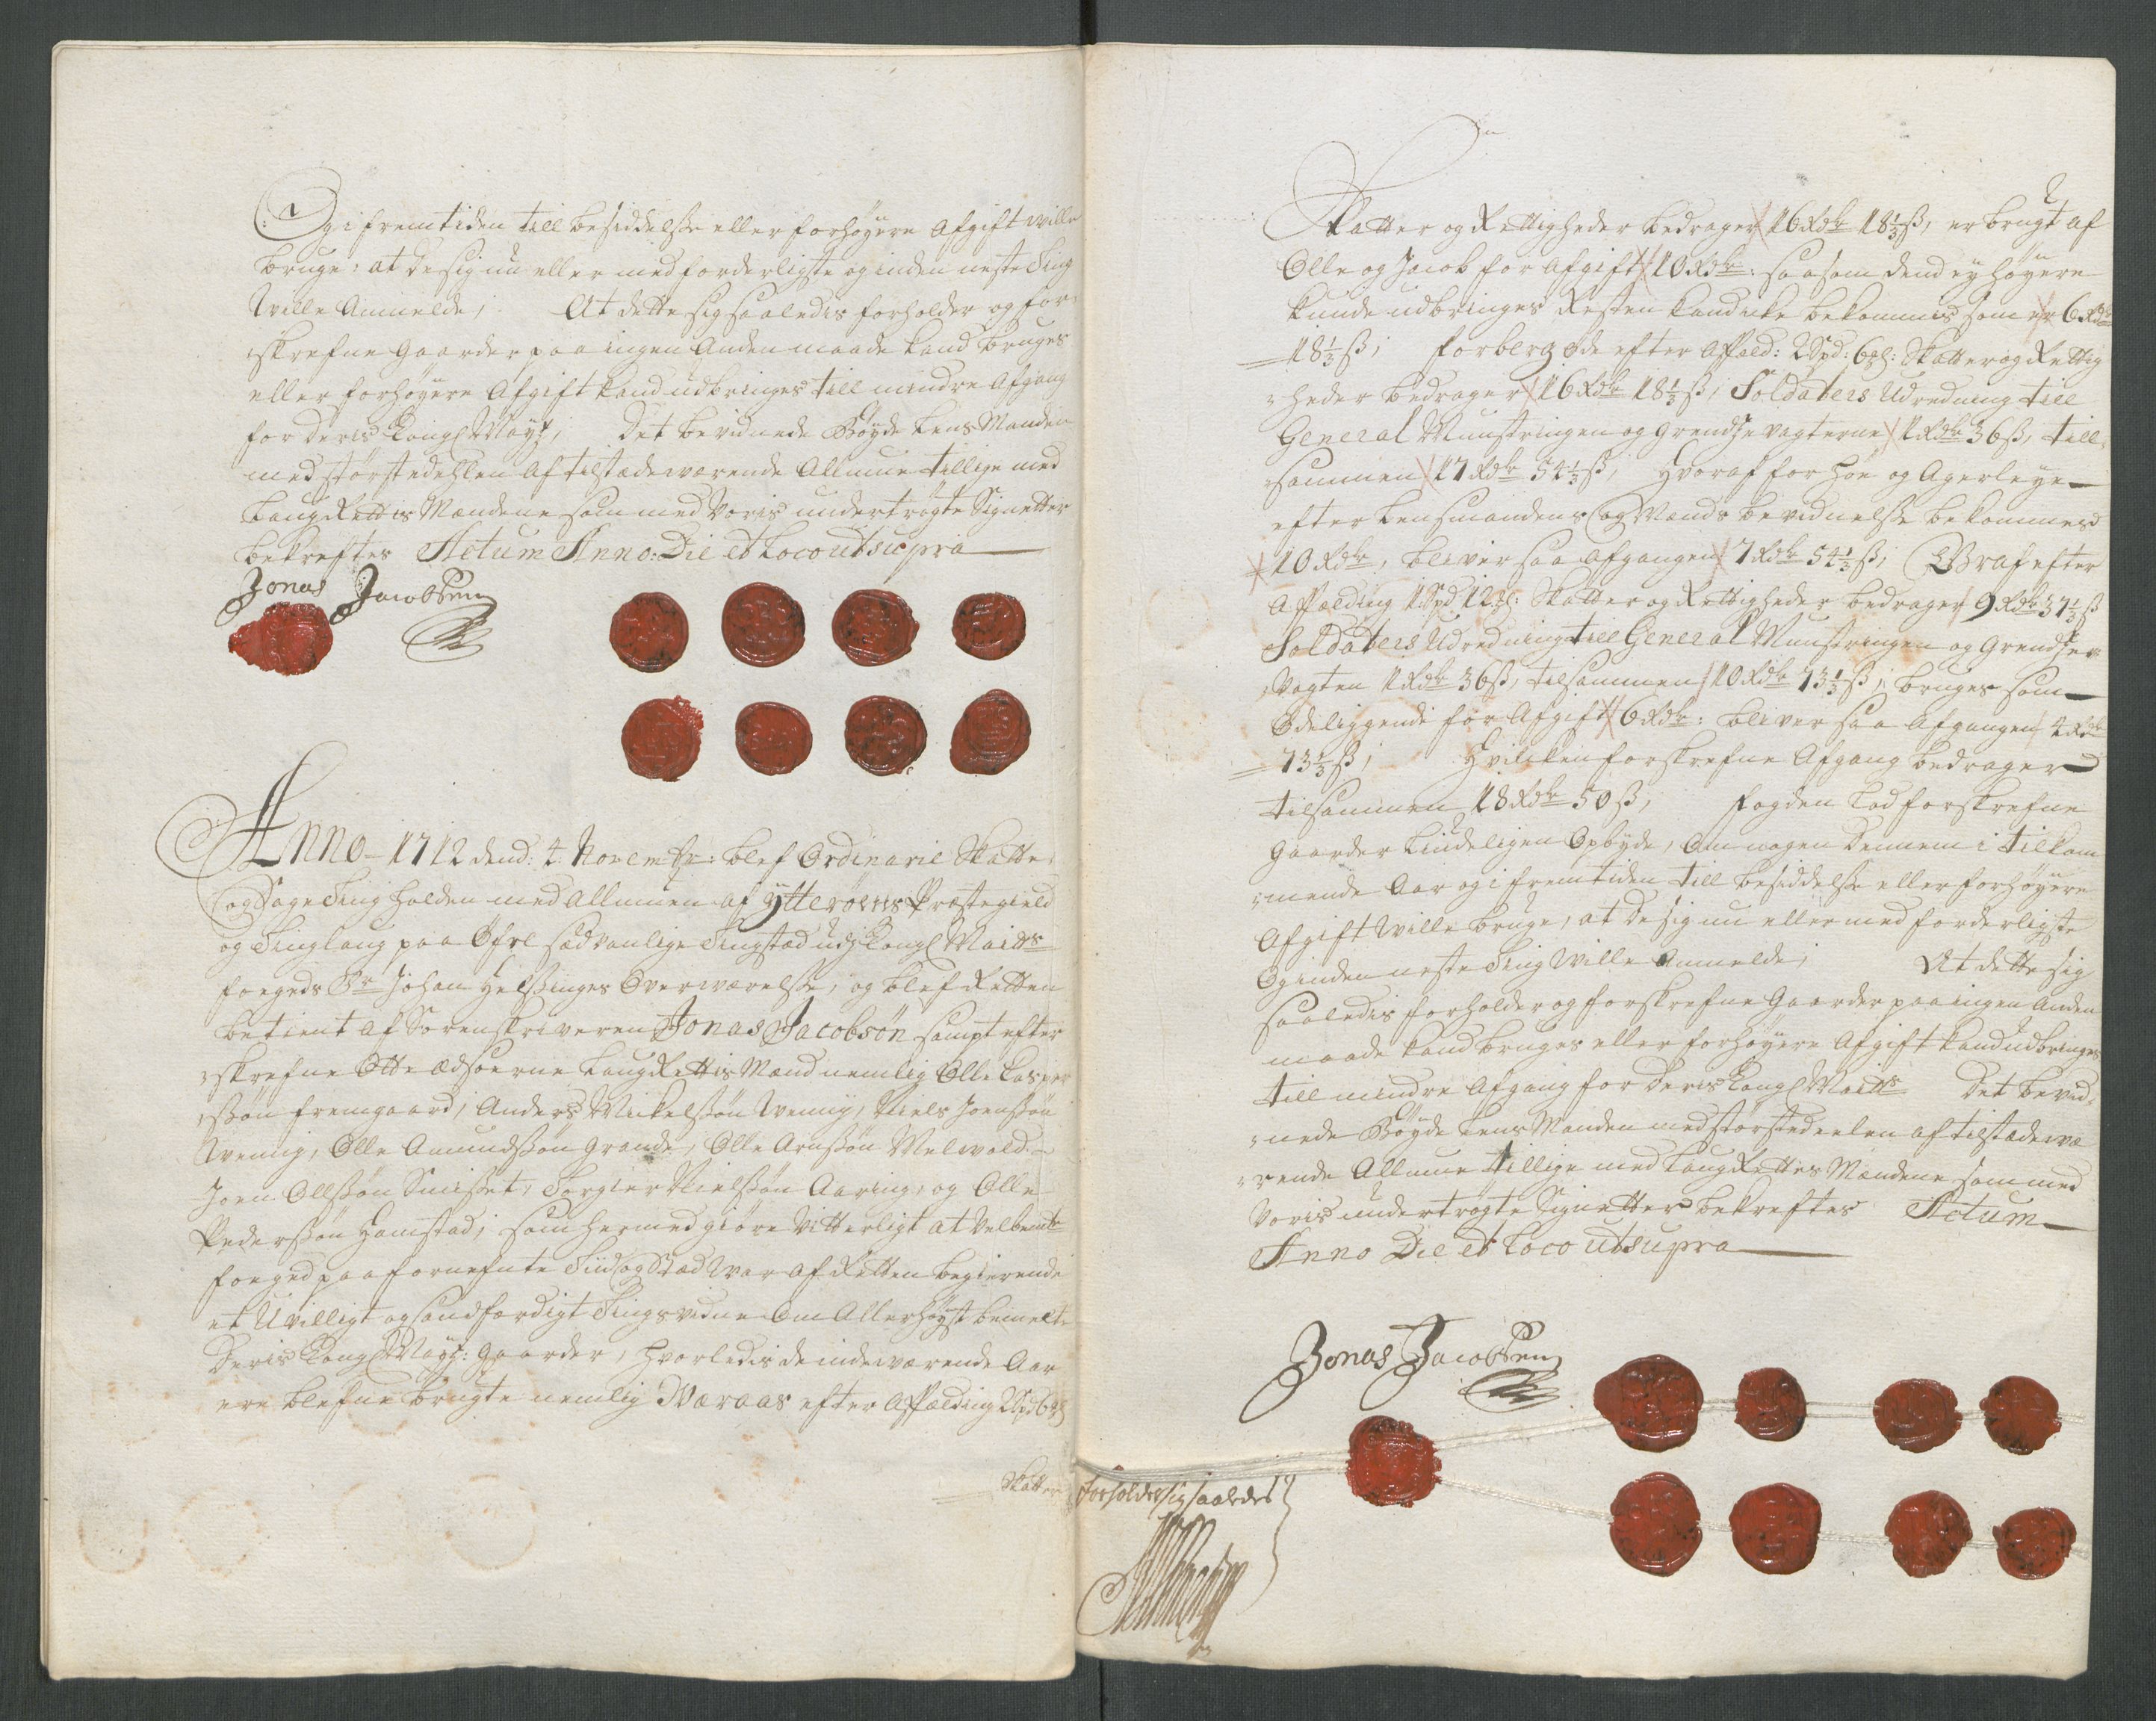 Og i fremtiden till besiddelse eller forhøyere Afgift wille
bruge, at de sig nu eller med forderligste og inden neste Ting
wille Anmelde; At dette sig saaledis forholder og for-
skrefne Gaarder paa ingen Anden maade kand bruges
eller forhøyere Afgift kand udbringes till mindre Afgang
for Deris Kongl Mayt; Det bevidnede Bøyde Lens Manden
med størstedehlen Af tilstædeværende Allmue tillige med
LaugRettis Mændene som med Voris undertrøgte Signetter
bekreftes Actum Anno: Die et Loco ut supra
Jonas Jacobsen
Anno 1712 dend: 4 Novembr: blef Ordinarie Skatte
og Sage Ting holden med Allmuen af Ytterøens Præstegield
og Tinglaug paa sædvanlige Tingstæd udj Kongl Maits
foegeds Sr Johan Helssinges Overværelse, og blef Retten
betient af Sorenskriveren Jonas Jacobsøn sampt efter
skrefne Otte Edsorne LaugRettis Mænd nemlig Olle Casper
søn fremgaard, Anders Mickelssøn Wennig, Niels Joenssøn
Wennig, Olle Amundssøn Grande, Olle Arnssøn Melwold
Joen Ollssøn Snisset, Torgier Nielssøn Aaring, og Olle
Pederssøn Hamstad; som hermed giøre Vitterligt at Velbemte
foeged paa fornefnte Tiid og Stæd War Af Retten begierende
et Uvilligt og sandfærdigt Tingsvidne Om Allerhøyst bemelte
Deris Kongl Mayts: Gaarder, hvorledis de indeværende Aar
ere blefne brugte nemlig Wæraas efter Affælding 2 Spd 6 ℔
Skatter
Skatter og Rettigheder bedrager 16 Rdr 18 1/3 ß, er brugt af
Olle og Jacob for Afgift 10 Rdr: saasom dend ey høyere
kunde udbringes Resten kand icke bekommis som er 6 Rdr
18 1/3 ß; Forberg øde efter Affæld: 2 Spd: 6 ℔: Skatter og Rettig
heder bedrager 16 Rdr 18 1/3 ß, Soldaters Udredning till
General Munstringen og Grendsevagterne 1 Rdr 36 ß, till
sammen 17 Rdr 54 1/3 ß, Hvoraf for høe og Agerleye
efter Lensmandens og Mænds bevidnelse bekommes
10 Rdr, bliver saa Afgangen 7 Rdr 54 1/3 ß; Braf efter
Affælding 1 Spd 12 ℔: Skatter og Rettigheder bedrager 9 Rdr 37 1/3 ß
Soldaters Udredning till General Munstringen og Grendse
Vagten 1 Rdr 36 ß, tilsammen 10 Rdr 73 1/3 ß, bruges som
Ødeliggende for Afgift 6 Rdr: bliver saa Afgangen 4 Rdr
73 1/3 ß; Hvilcken forskrefne Afgang bedrager
tilsammen 18 Rdr 50 ß, fogden lod forskrefne
Gaarder Liudeligen Opbyde, Om nogen Dennem i tilkom
mende Aar og i fremtiden till besiddelse eller forhøyere
Afgift Wille bruge, at de sig nu eller med forderligste
Og inden neste Ting Wille Anmelde; At dette sig
saaledis forholder og forskrefne Gaarder paa ingen Anden
maade kand bruges eller forhøyere Afgift kand udbringes
till mindre Afgang for Deris Kongl Maits Det bevid
nede Bøyde Lens Manden med størstedeelen af tilstædewæ
rende Allmue tillige med LaugRettes Mændene som med
Voris undertrøgte Signetter bekreftes Actum
Anno Die et Loco ut supra
Jonas Jacobsen
forholder sig saaledes